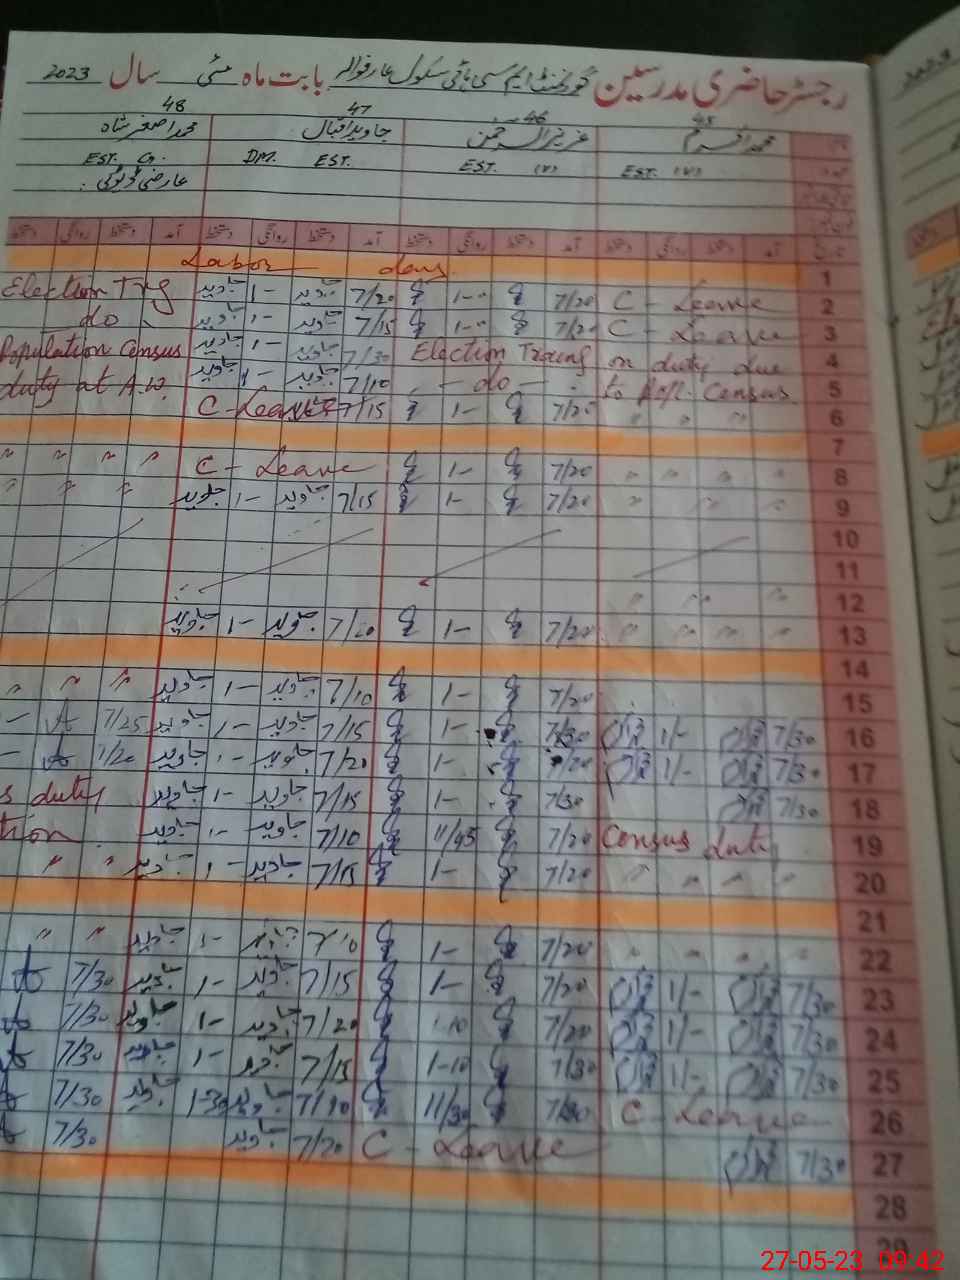 رجسٹر حاضری مدرسین گورنمنٹ ایم سی ہائی سکول عارفوالہ بابت ماہ مئی سال 2023
45 46 47 48
محمد اکرم عزیز الرحمن جاوید اقبال محمد اصغر شاہ
EST. (V) EST. (V) DM. EST. EST. G.
عارضی ڈیوٹی
آمد دستخط روانگی دستخط آمد دستخط روانگی دستخط آمد دستخط روانگی دستخط آمد دستخط روانگی دستخط
1 Labor day
2 C-Leave 7/20 1-- 7/20 جاوید 1- جاوید Election Trg
3 C-Leave 7/20 1-- 7/15 جاوید 1- جاوید do
4 on duty due Election Traing 7/30 جاوید 1- جاوید Population Census
5 to Pop. Census -do- 7/10 جاوید 1- جاوید duty at A.W.
6 " " " 7/25 1- 7/15 C-Leave
7
8 " " " " 7/20 1- C-Leave " " " "
9 " " " " 7/20 1- 7/15 جاوید 1- جاوید " " "
10
11
12 " " "
13 " " " " 7/20 1- 7/20 جاوید 1- جاوید
14
15 7/20 1- 7/10 جاوید 1- جاوید " " "
16 7/30 1/- 7/30 1- 7/15 جاوید 1- جاوید 7/25
17 7/30 1/- 7/20 1- 7/20 جاوید 1- جاوید 7/20
18 7/30 7/30 1- 7/15 جاوید 1- جاوید s duty
19 Census duty 7/20 11/45 7/10 جاوید 1- جاوید tion
20 " " " " 7/20 1- 7/15 جاوید 1- جاوید " "
21
22 " " " " 7/20 1- 7/10 جاوید 1- جاوید " "
23 7/30 1/- 7/20 1- 7/15 جاوید 1- جاوید 7/30
24 7/30 1/- 7/20 1-10 7/20 جاوید 1- جاوید 7/30
25 7/30 1/- 7/30 1-10 7/15 جاوید 1- جاوید 7/30
26 C-Leave 7/30 11/30 7/10 جاوید 1-30 جاوید 7/30
27 7/30 C-Leave 7/20 جاوید 7/30
28
29
27-05-23 09:42